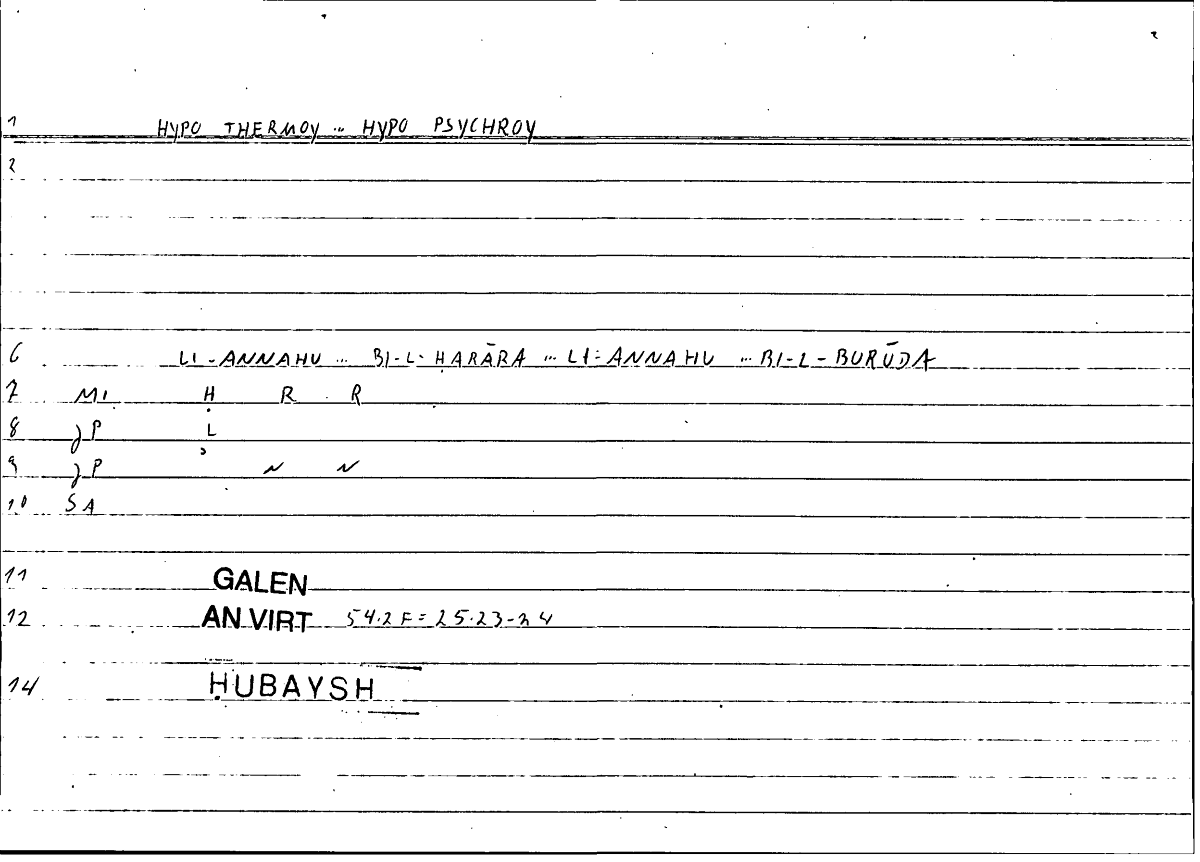 1 HYPO THERMOY .. HYPO PSYCHROY
2
6 LI-ANNAHU ... BI-L-ḤARĀRA ... LI-ANNAHU ... BI-L-BURŪDA
7 MI Ḥ R R
8 JP L
9 JP N N
10 SA
11 GALEN
12 AN VIRT 54.2F = 25.23-24
14 ḤUBAYSH